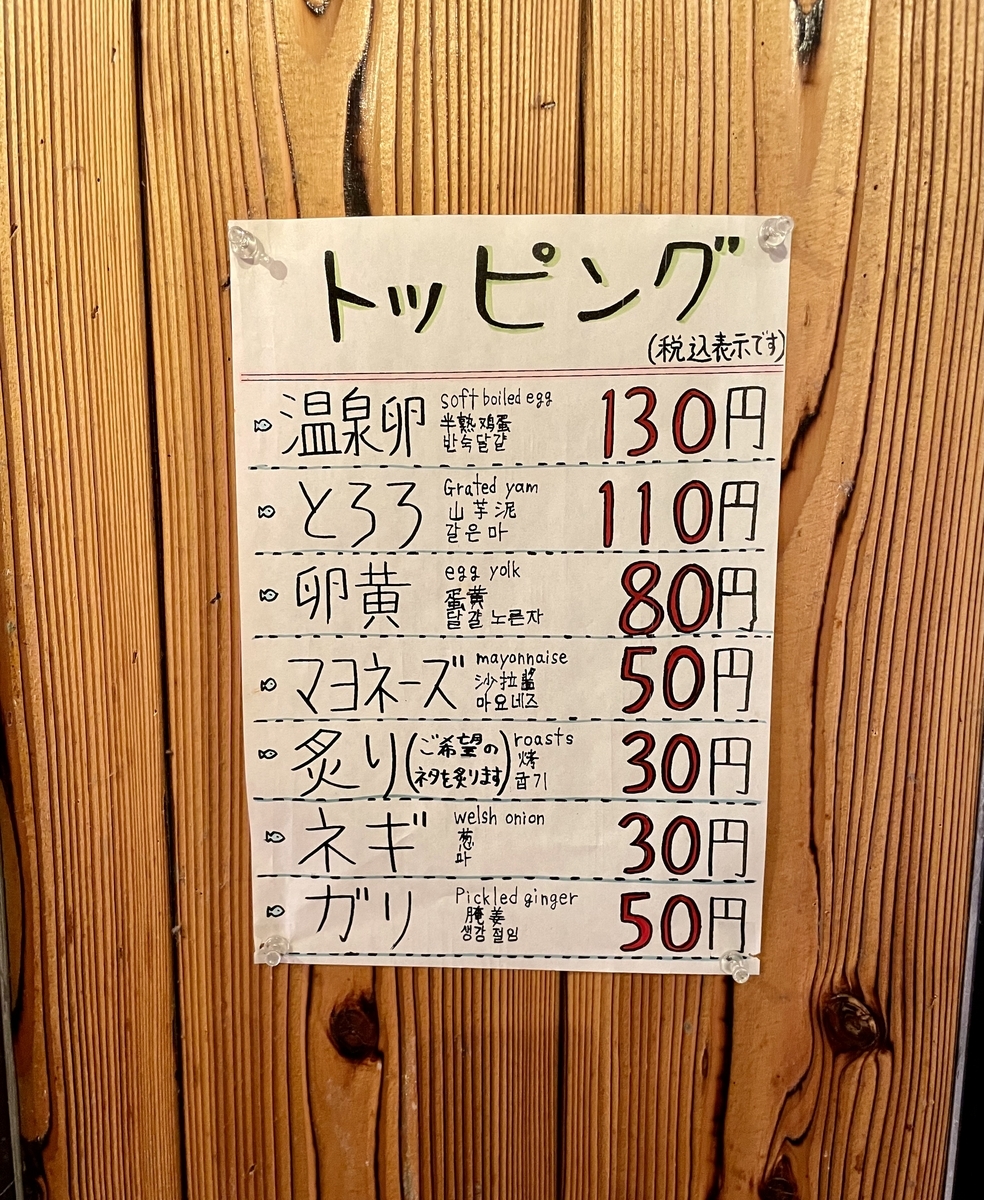 トッピング
(税込表示です)
温泉卵 soft boiled egg 130円
半熟鸡蛋
반숙달걀
とろろ Grated yam 110円
山芋泥
갈은마
卵黄 egg yolk 80円
蛋黄
달걀 노른자
マヨネーズ mayonnaise 50円
沙拉醬
마요네즈
炙り(ご希望の roasts 30円
ネタを炙ります) 烤
굽기
ネギ welsh onion 30円
葱
파
ガリ Pickled ginger 50円
腌姜
생강 절임